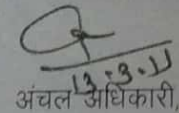 13-3-11
अंचल अधिकारी,